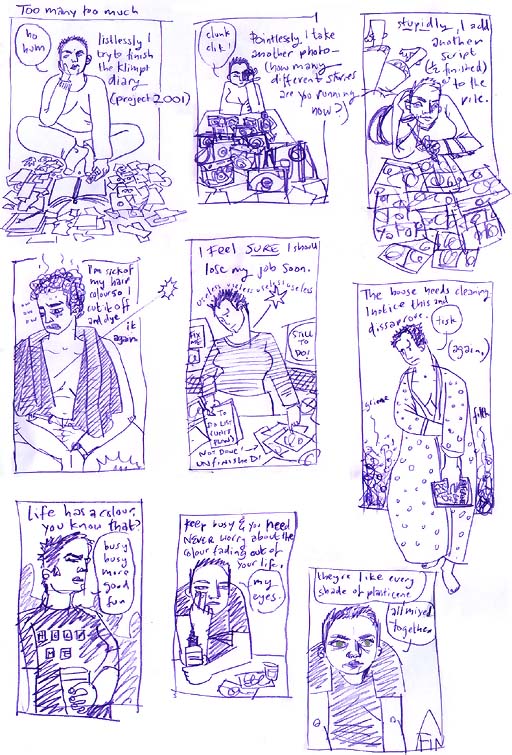 Too many too much
ho
hum
listlessly I
try to finish
the klimpt
diary
(project 2001)
clunk
clik!
Pointlessly I take
another photo—
(how many
different stories
are you running
now?)
stupidly, I add
another
script
(½ finished)
to the
pile.
I'm sick of
my hair
colour so I
cut it off
and dye
it
again
ow
ow
ow
I feel SURE I should
lose my job soon.
useless useless useless useless
FIX
ME
STILL
TO
DO!
TO
DO LIST
NOT DONE!
UNFINISHED!
The house needs cleaning
I notice this and
dissaprove.
tisk
(again)
grime
filth
Life has a colour,
you know that?
busy
busy
more
good
fun
keep busy & you need
NEVER worry about the
colour fading out of
your life.
my
eyes.
they're like every
shade of plasticene
all mixed
together
FIN